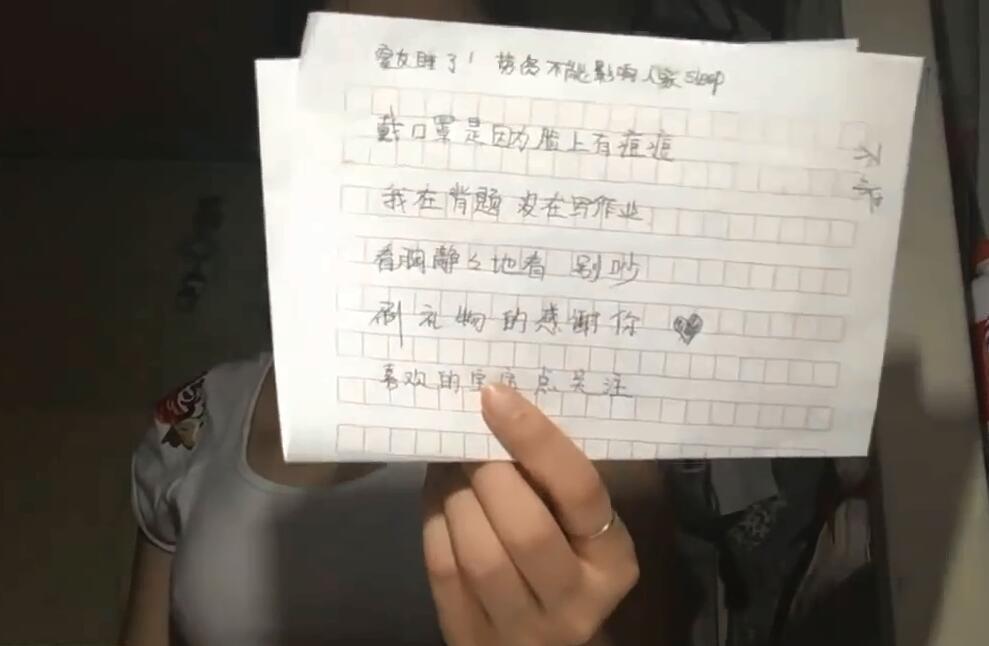 室友睡了! 劳资不能影响人家sleep
戴口罩是因为脸上有痘痘
我在背题 没在写作业
看胸静々地看 别吵
刷礼物的感谢你
喜欢的宝宝点关注